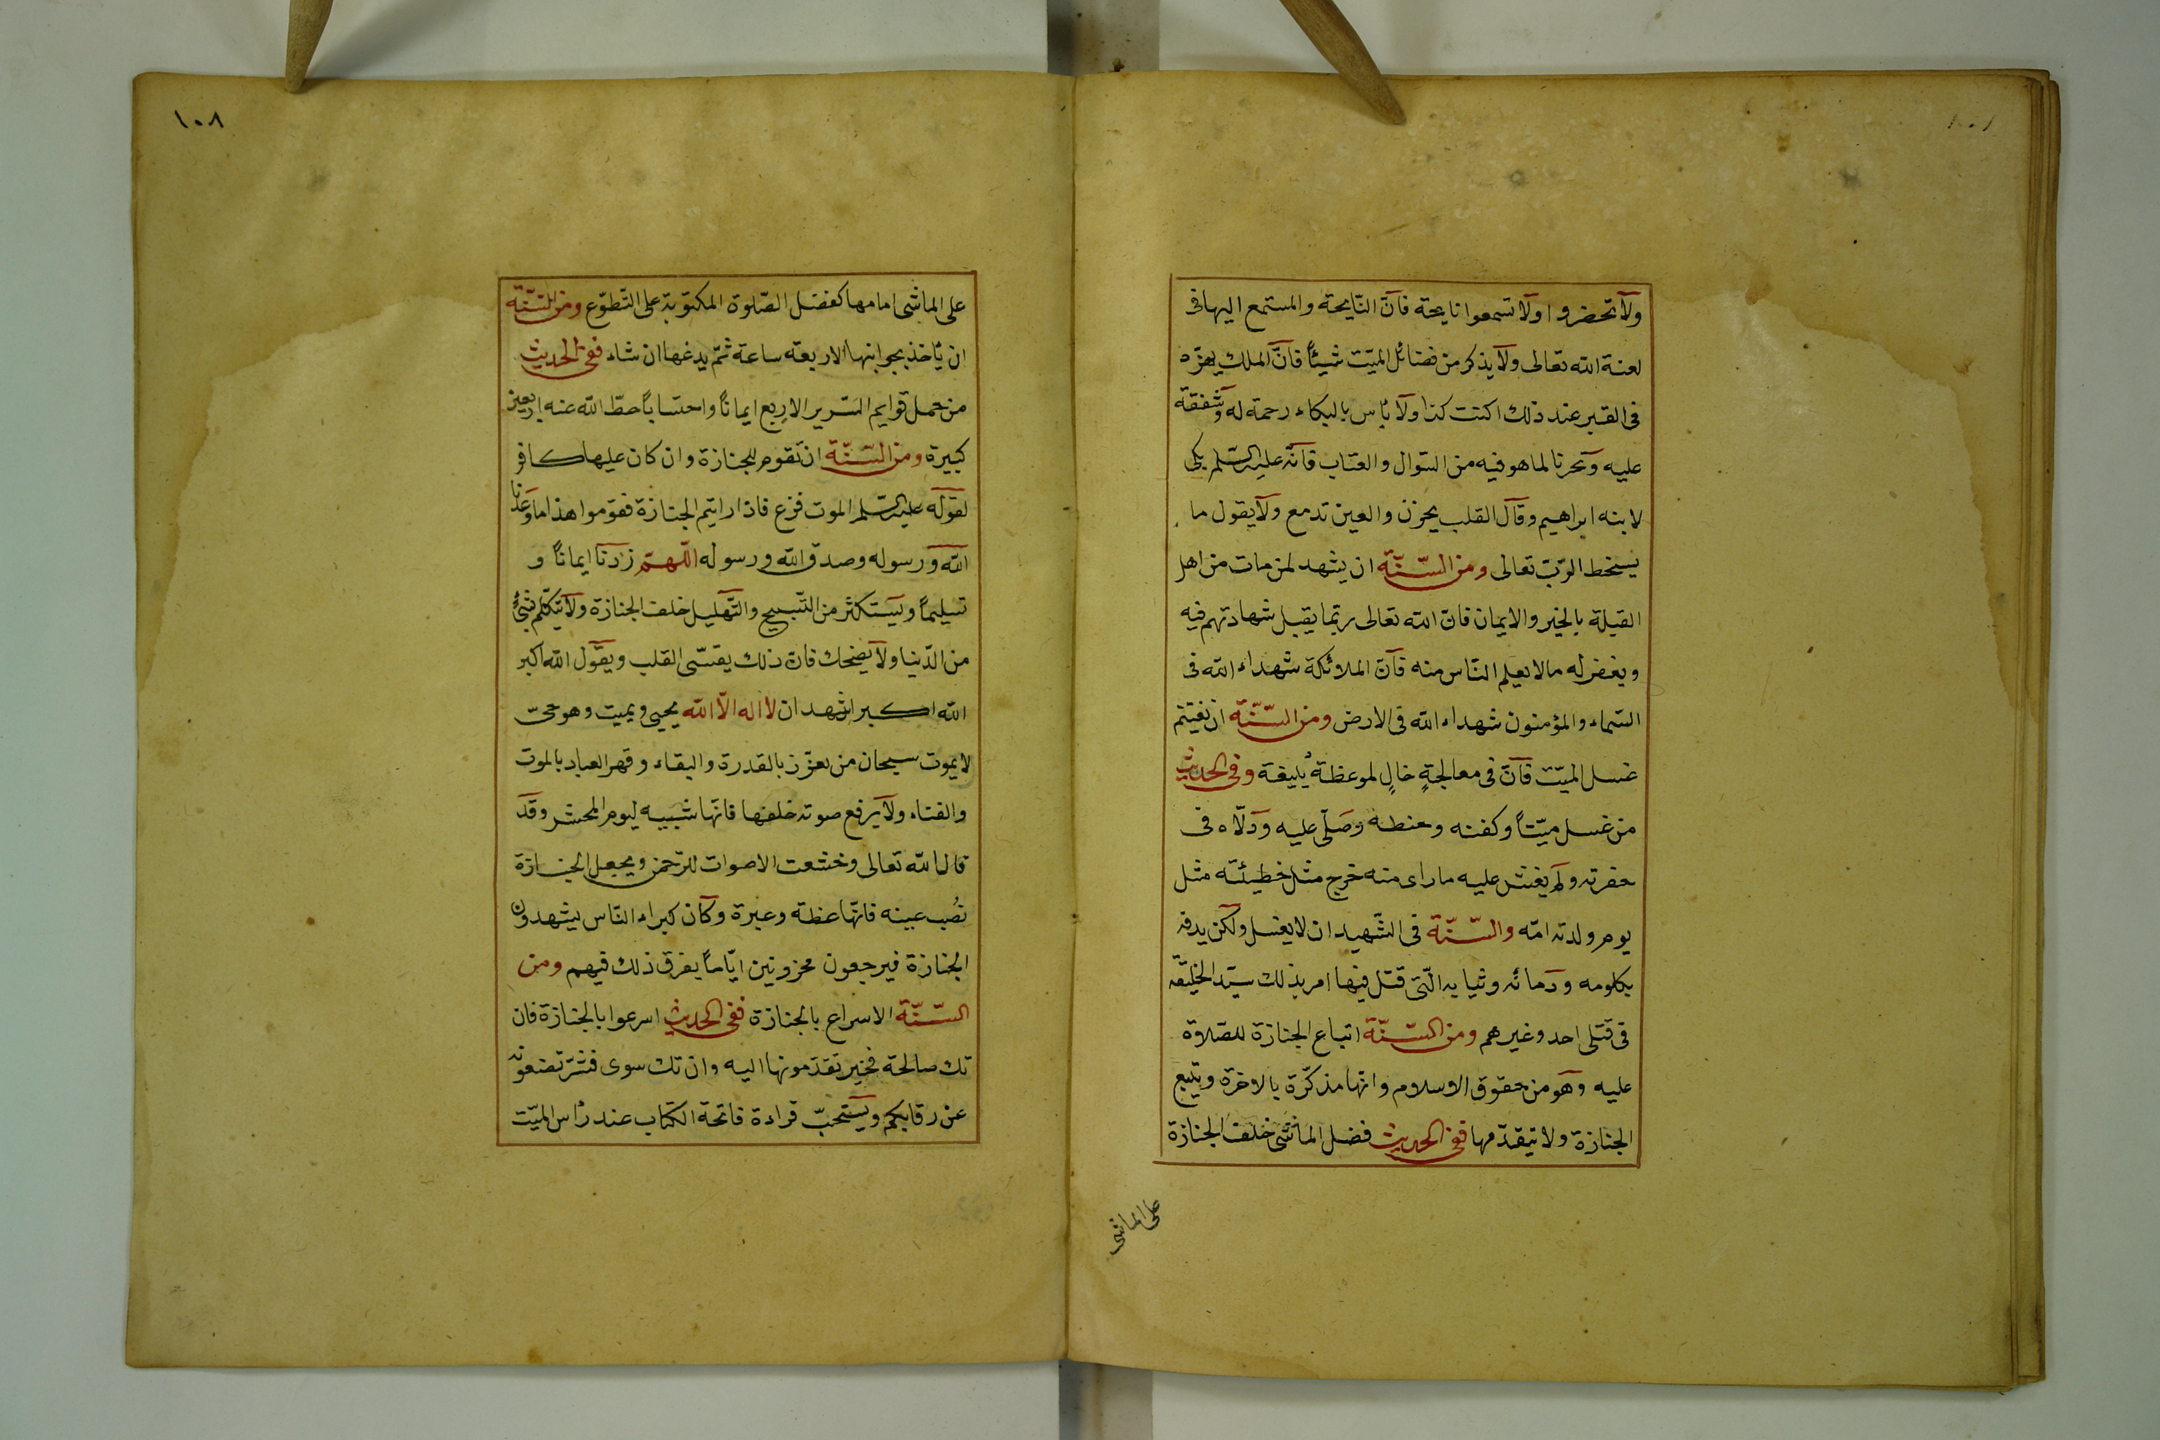 ولا تحضروا ولا تسمعوا نايحة فان النايحة والمستمع اليها في
لعنة الله تعالى ولا يذكر من فضائل الميت شيئا فان الملك يهزه
في القبر عند ذلك اكنت كذا ولا بأس بالبكاء رحمة له وشفقة
عليه وتحزنا لما هو فيه من السوال والعتاب فانه عليه السلم بكى
لابنه ابراهيم وقال القلب يحزن والعين تدمع ولا يقول ما
يسخط الرب تعالى ومن السنة ان يشهد لمن مات من اهل
القبلة بالخير والايمان فان الله تعالى ربما يقبل شهادتهم فيه
ويغفر له ما لا يعلم الناس منه فان الملائكة شهداء الله في
السماء والمؤمنون شهداء الله في الارض ومن السنة ان يغتنم
غسل الميت فان في معالجة خال لموعظة بليغة وفي الحديث
من غسل ميتا وكفنه وحنطه وصلى عليه ودلاه في
حفرته ولم يفش عليه ما راى منه خرج مثل خطيئته مثل
يوم ولدته امه والسنة في الشهيد ان لا يغسل ولكن يدفن
بكلومه ودمائه وثيابه التى قتل فيها امر بذلك سيد الخليقة
في قتلى احد وغيرهم ومن السنة اتباع الجنازة للصلاة
عليه وهو من حقوق الاسلام وانها مذكرة بالاخرة ويتبع
الجنازة ولا يتقدمها ففي الحديث فضل الماشى خلف الجنازة
على الماشى
١٠٨
على الماشى امامها كفضل الصلوة المكتوبة على التطوع ومن السنة
ان يأخذ بجوانبها الاربعة ساعة ثم يدعها ان شاء ففي الحديث
من حمل قوايم السرير الاربع ايمانا واحتسابا حط الله عنه اربعين
كبيرة ومن السنة ان يقوم للجنازة وان كان عليها كافر
لقوله عليه السلم الموت فزع فاذا رايتم الجنازة فقوموا هذا ما وعدنا
الله ورسوله وصدق الله ورسوله اللهم زدنا ايمانا و
تسليما ويستكثر من التسبيح والتهليل خلف الجنازة ولا يتكلم بشئ
من الدنيا ولا يضحك فان ذلك يقسى القلب ويقول الله اكبر
الله اكبر اشهد ان لا اله الا الله يحيى ويميت وهو حى
لا يموت سبحان من تعزز بالقدرة والبقاء وقهر العباد بالموت
والفناء ولا يرفع صوته خلفها فانها شبيه ليوم المحشر وقد
قال الله تعالى وخشعت الاصوات للرحمن ويجعل الجنازة
نصب عينه فانها عظة وعبرة وكان كبراء الناس يشهدون
الجنازة فيرجعون محزونين اياما يفرق ذلك فيهم ومن
السنة الاسراع بالجنازة ففي الحديث اسرعوا بالجنازة فان
تك صالحة فخير تقدمونها اليه وان تك سوى فشر تضعونه
عن رقابكم ويستحب قراءة فاتحة الكتاب عند رأس الميت